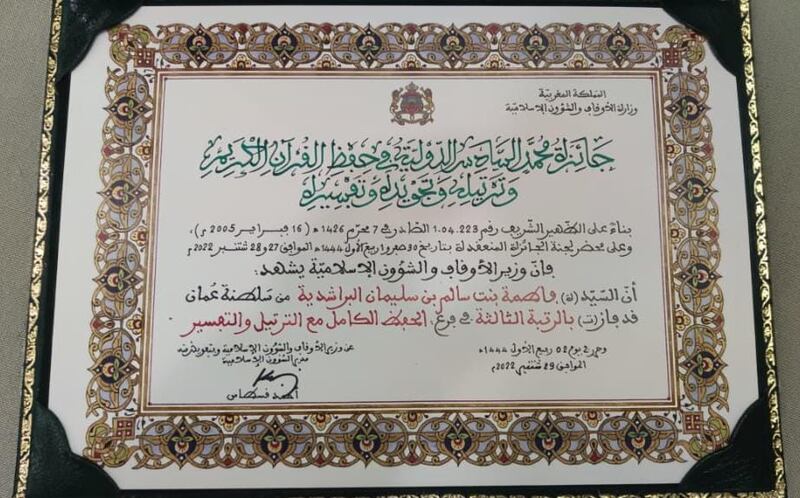 المملكة المغربية
وزارة الأوقاف والشؤون الإسلامية
جائزة محمد السادس الدولية في حفظ القرآن الكريم
وترتيله وتجويده وتفسيره
بناء على الظهير الشريف رقم 1.04.223 الصادر في 7 محرم 1426 ه (16 فبراير 2005 م)،
وعلى محضر لجنة الجائزة المنعقدة بتاريخ 30 صفر و1 ربيع الأول 1444 ه الموافق 27 و28 شتنبر 2022 م
فإن وزير الأوقاف والشؤون الإسلامية يشهد:
أن السيد(ة)، فاطمة بنت سالم بن سليمان البراشدية من سلطنة عُمان
قد فاز(ت) بالرتبة الثالثة في فرع: الحفظ الكامل مع الترتيل والتفسير
وحرر في يوم 02 ربيع الأول 1444 ه
الموافق 29 شتنبر 2022م
عن وزير الأوقاف والشؤون الإسلامية وبتفويض منه
مدير الشؤون الإسلامية
أحمد قسطاس